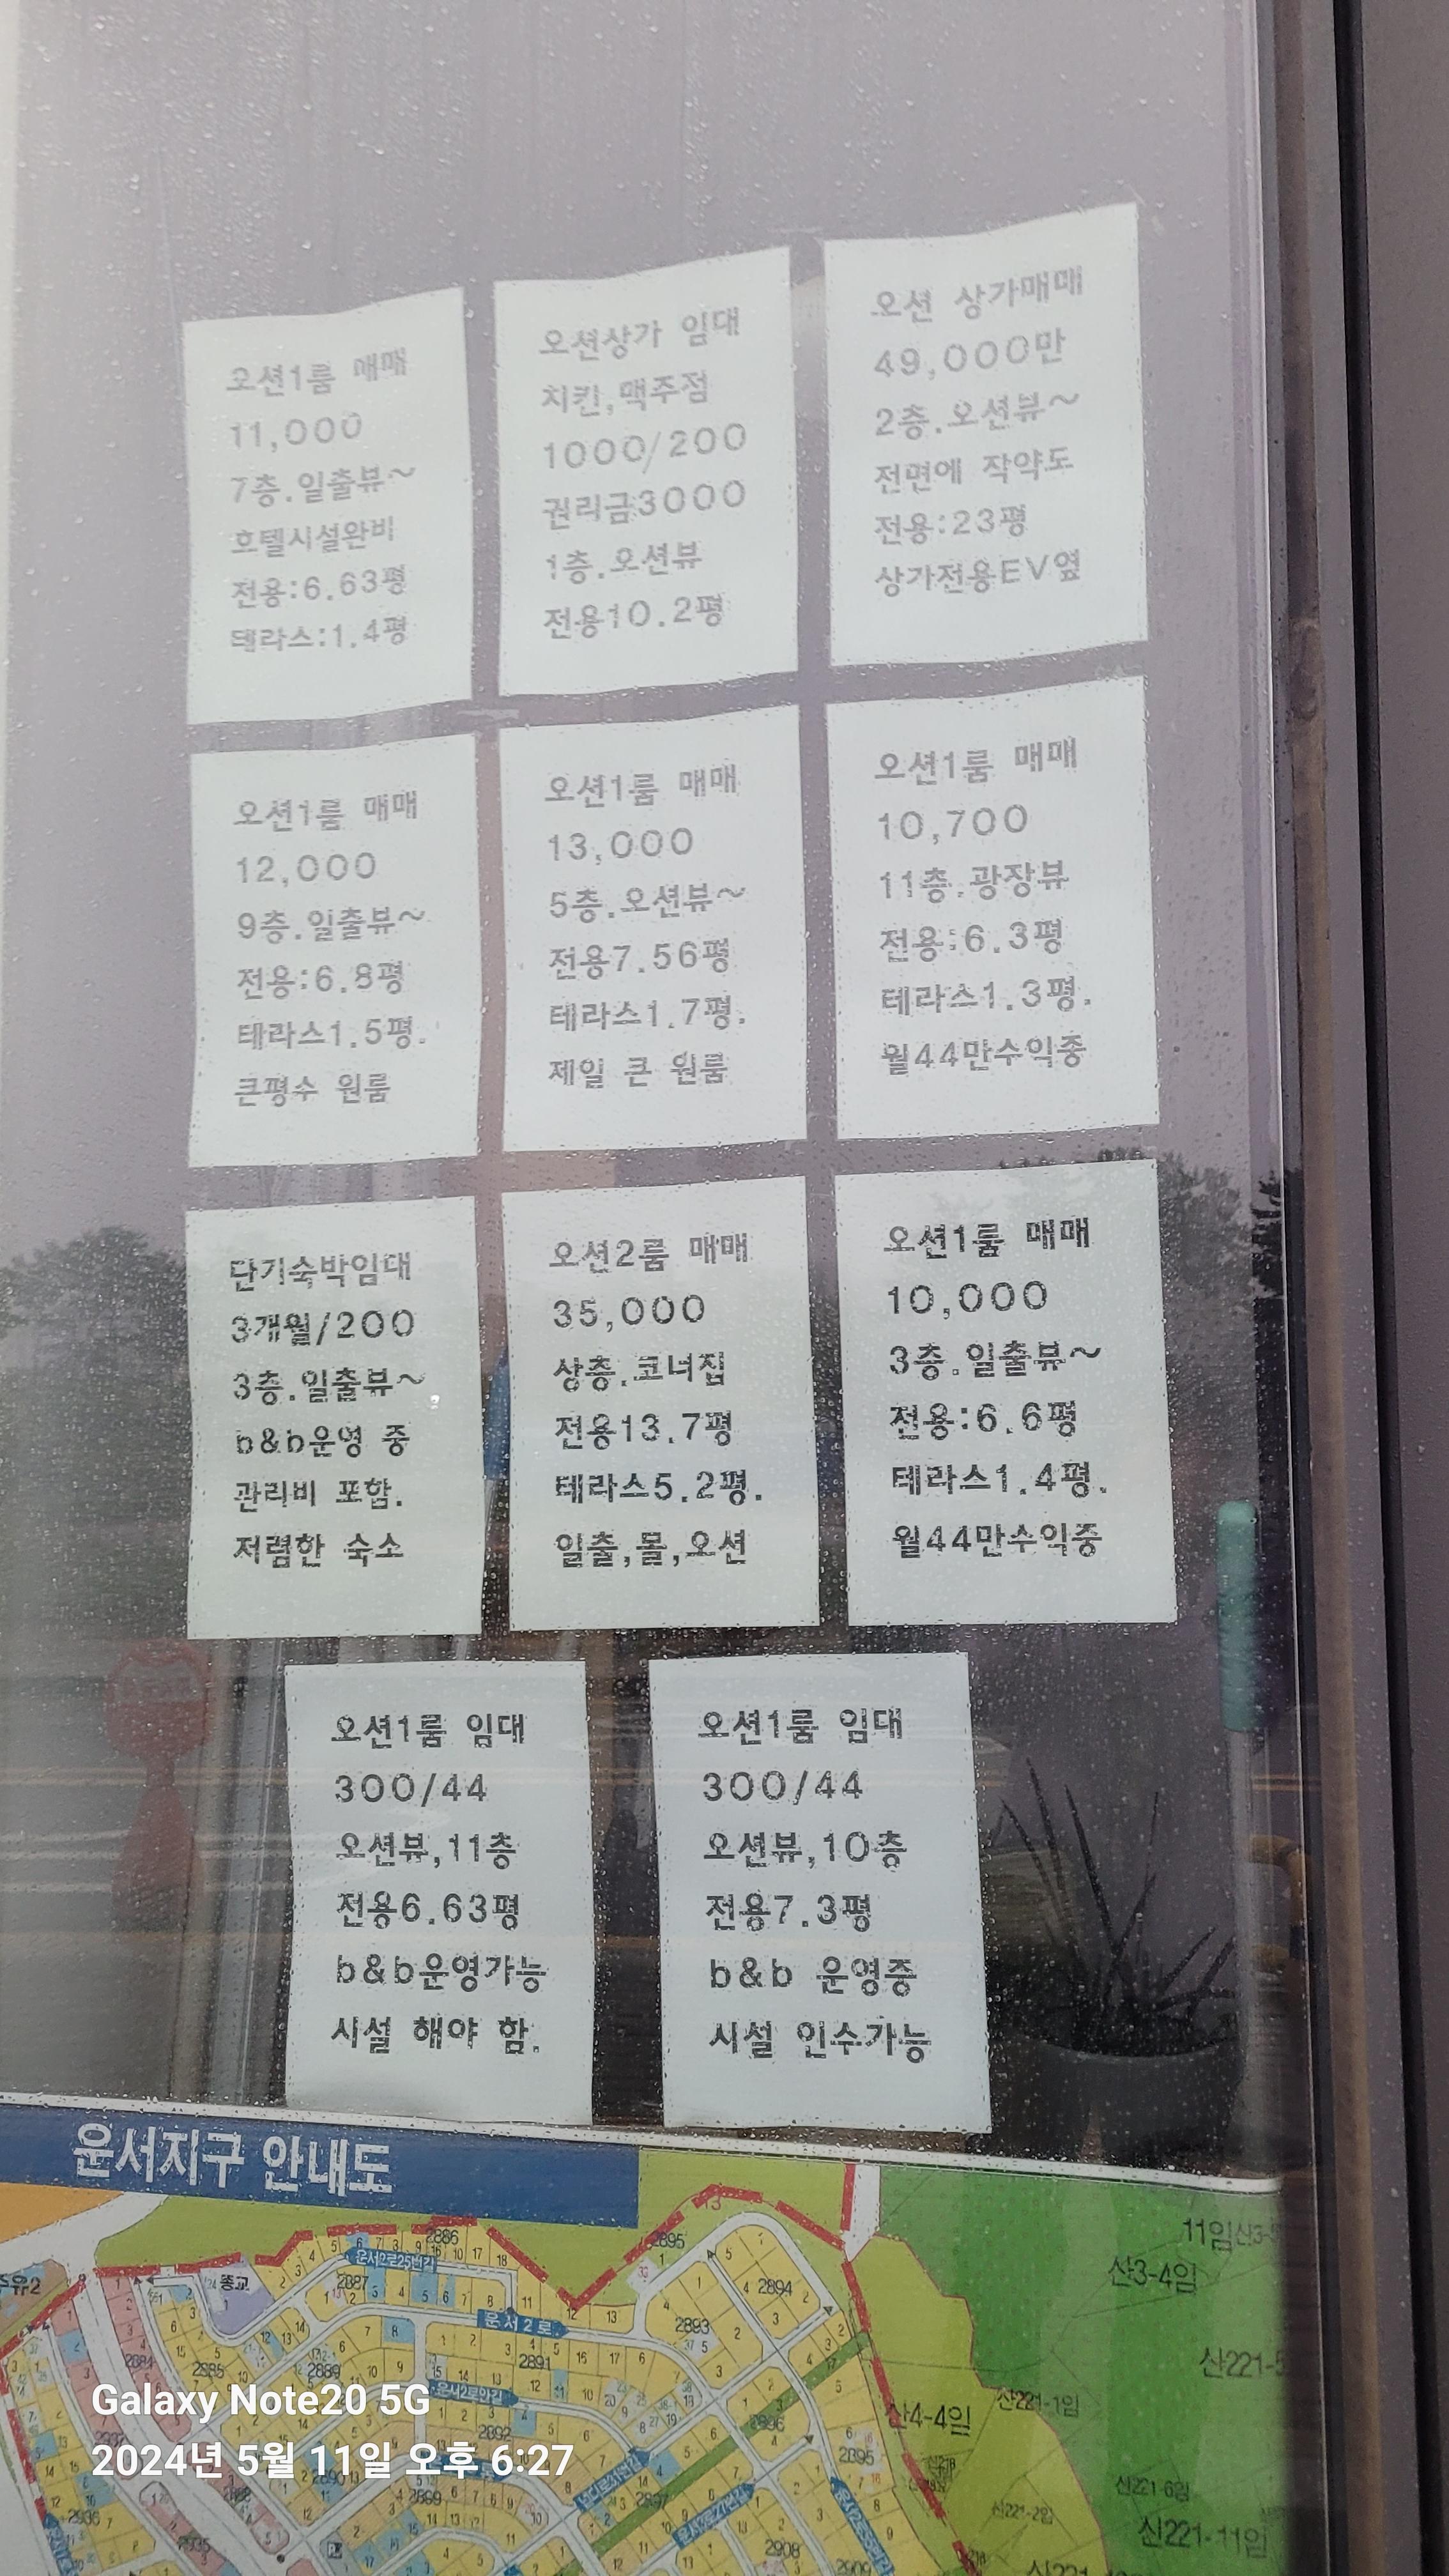 오션1룸 매매
11,000
7층.일출뷰~
호텔시설완비
전용:6.63평
테라스:1.4평
오션상가 임대
치킨,맥주점
1000/200
권리금3000
1층.오션뷰
전용10.2평
오션 상가매매
49,000만
2층.오션뷰~
전면에 작약도
전용:23평
상가전용EV옆
오션1룸 매매
12,000
9층.일출뷰~
전용:6.8평
테라스1.5평.
큰평수 원룸
오션1룸 매매
13,000
5층.오션뷰~
전용7.56평
테라스1.7평.
제일 큰 원룸
오션1룸 매매
10,700
11층.광장뷰
전용:6.3평
테라스1.3평.
월44만수익중
단기숙박임대
3개월/200
3층.일출뷰~
b&b운영 중
관리비 포함.
저렴한 숙소
오션2룸 매매
35,000
상층.코너집
전용13.7평
테라스5.2평.
일출,몰,오션
오션1룸 매매
10,000
3층.일출뷰~
전용:6.6평
테라스1.4평.
월44만수익중
오션1룸 임대
300/44
오션뷰,11층
전용6.63평
b&b운영가능
시설 해야 함.
오션1룸 임대
300/44
오션뷰,10층
전용7.3평
b&b 운영중
시설 인수가능
운서지구 안내도
2886
2895
11임
산3-4임
종교
운서2로25번길
2887
2894
운서2로
2893
2885
2889
2891
2892
2896
산4-4임
산221-1임
2895
산221-6임
산221-11임
2908
Galaxy Note20 5G
2024년 5월 11일 오후 6:27